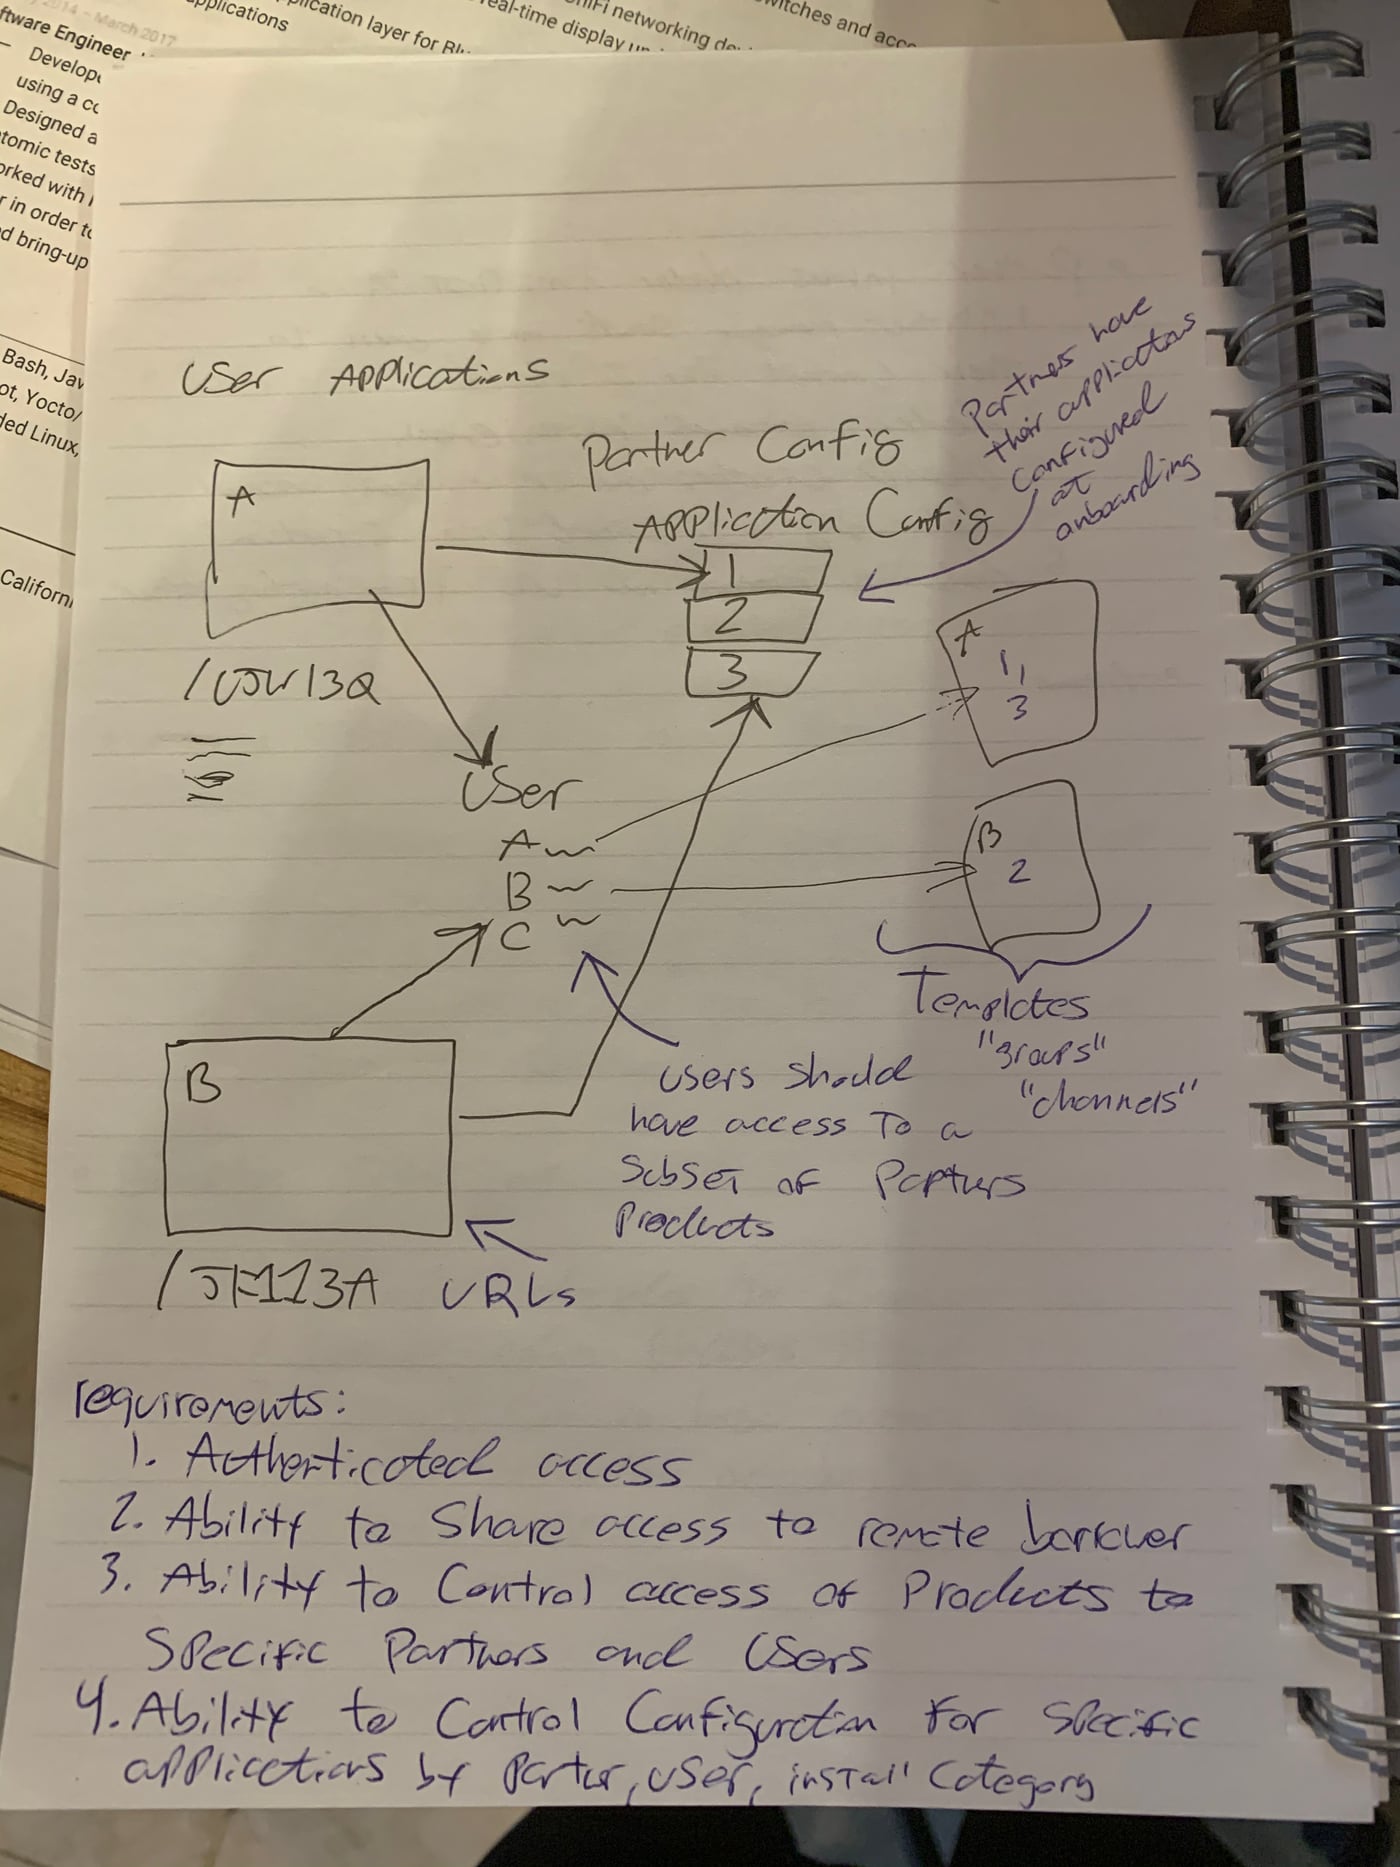 2014 – March 2017
ftware Engineer
Develop
using a co
Designed a
tomic tests
orked with
r in order to
d bring-up
Bash, Jav
ot, Yocto/
ded Linux,
Californi
pplications
plication layer for Blu
real-time display up
niFi networking de
witches and acce
User Applications
Partner Config
Application Config
Partners have
their applications
configured
at
onboarding
A
1
2
3
A
1,
3
/UJW13Q
User
A
B
C
B
2
Templates
"groups"
"channels"
B
users should
have access to a
subset of Partners
Products
URLs
requirements:
1. Authenticated access
2. Ability to Share access to remote
3. Ability to Control access of Products to
Specific Partners and Users
4. Ability to Control Configuration for specific
applications by partner, user, install category